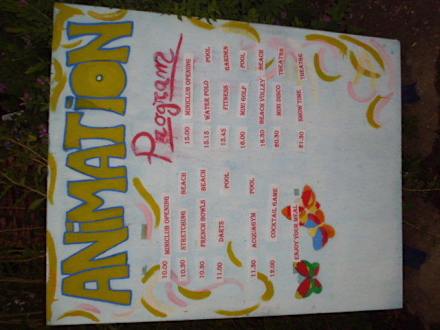 ANiMATiON
Programme
10.00 MINICLUB OPENING
10.30 STRETCHING BEACH
10.30 FRENCH BOWLS BEACH
11.00 DARTS POOL
11.30 ACQUAGYM POOL
12.00 COCKTAIL GAME
ENJOY YOUR MEAL
15.00 MINICLUB OPENING
15.15 WATER POLO POOL
15.45 FITNESS GARDEN
16.00 MINI GOLF POOL
16.30 BEACH VOLLEY BEACH
20.30 MINI DISCO THEATRE
21.30 SHOW TIME THEATRE